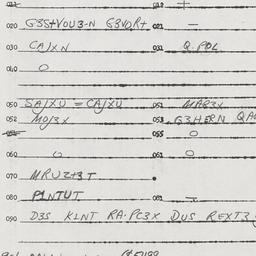 020 G3S+VOU3-N G3VQR+ 021 —
030 CA/XN 031 Q.POL
040 O
050 SA/XU = CA/XU 051 MAR3X
052 MO/3X 053 G3HERN
055 O
060 O 061 O
070 MRUZ+3T
080 P1NTUT 081 —
090 D3S K1NT RA.PC3X DUS REXT3